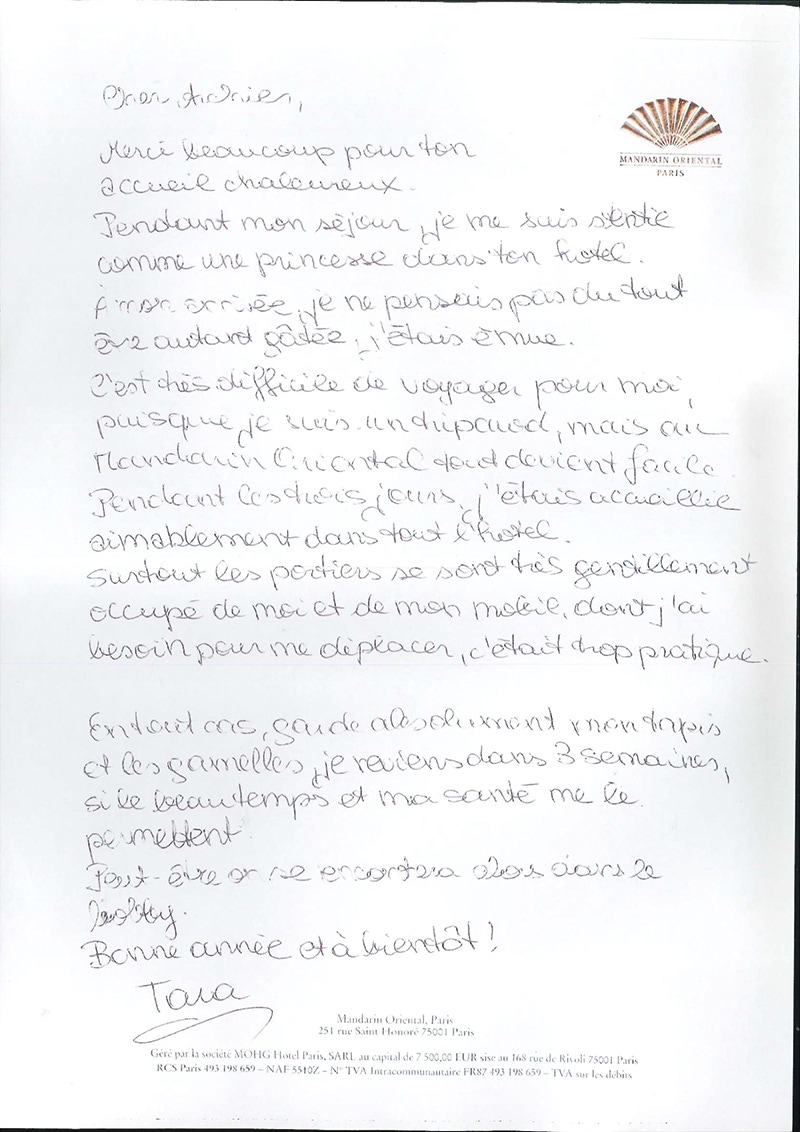 Cher Adrien,
MANDARIN ORIENTAL
PARIS
Merci beaucoup pour ton
accueil chaleureux.
Pendant mon séjour, je me suis sentie
comme une princesse dans ton hotel.
À mon arrivée, je ne pensais pas du tout
être autant gâtée, j'étais émue.
C'est très difficile de voyager pour moi,
puisque je suis un dripaud, mais au
Mandarin Oriental tout devient facile.
Pendant les trois jours, j'étais accueillie
aimablement dans tout l'hotel.
Surtout les portiers se sont très gentillement
occupé de moi et de mon mobil, dont j'ai
besoin pour me déplacer, c'était trop pratique.
En tout cas, garde absolument mon tapis
et les gamelles, je reviens dans 3 semaines,
si le beau temps et ma santé me le
permettent.
Peut-être on se encontrera alors dans le
lobby.
Bonne année et à bientôt !
Tara
Mandarin Oriental, Paris
251 rue Saint Honoré 75001 Paris
Géré par la société MOHG Hotel Paris, SARL au capital de 7 500,00 EUR sise au 168 rue de Rivoli 75001 Paris
RCS Paris 493 198 659 – NAF 5510Z – N° TVA Intracommunautaire FR87 493 198 659 – TVA sur les débits